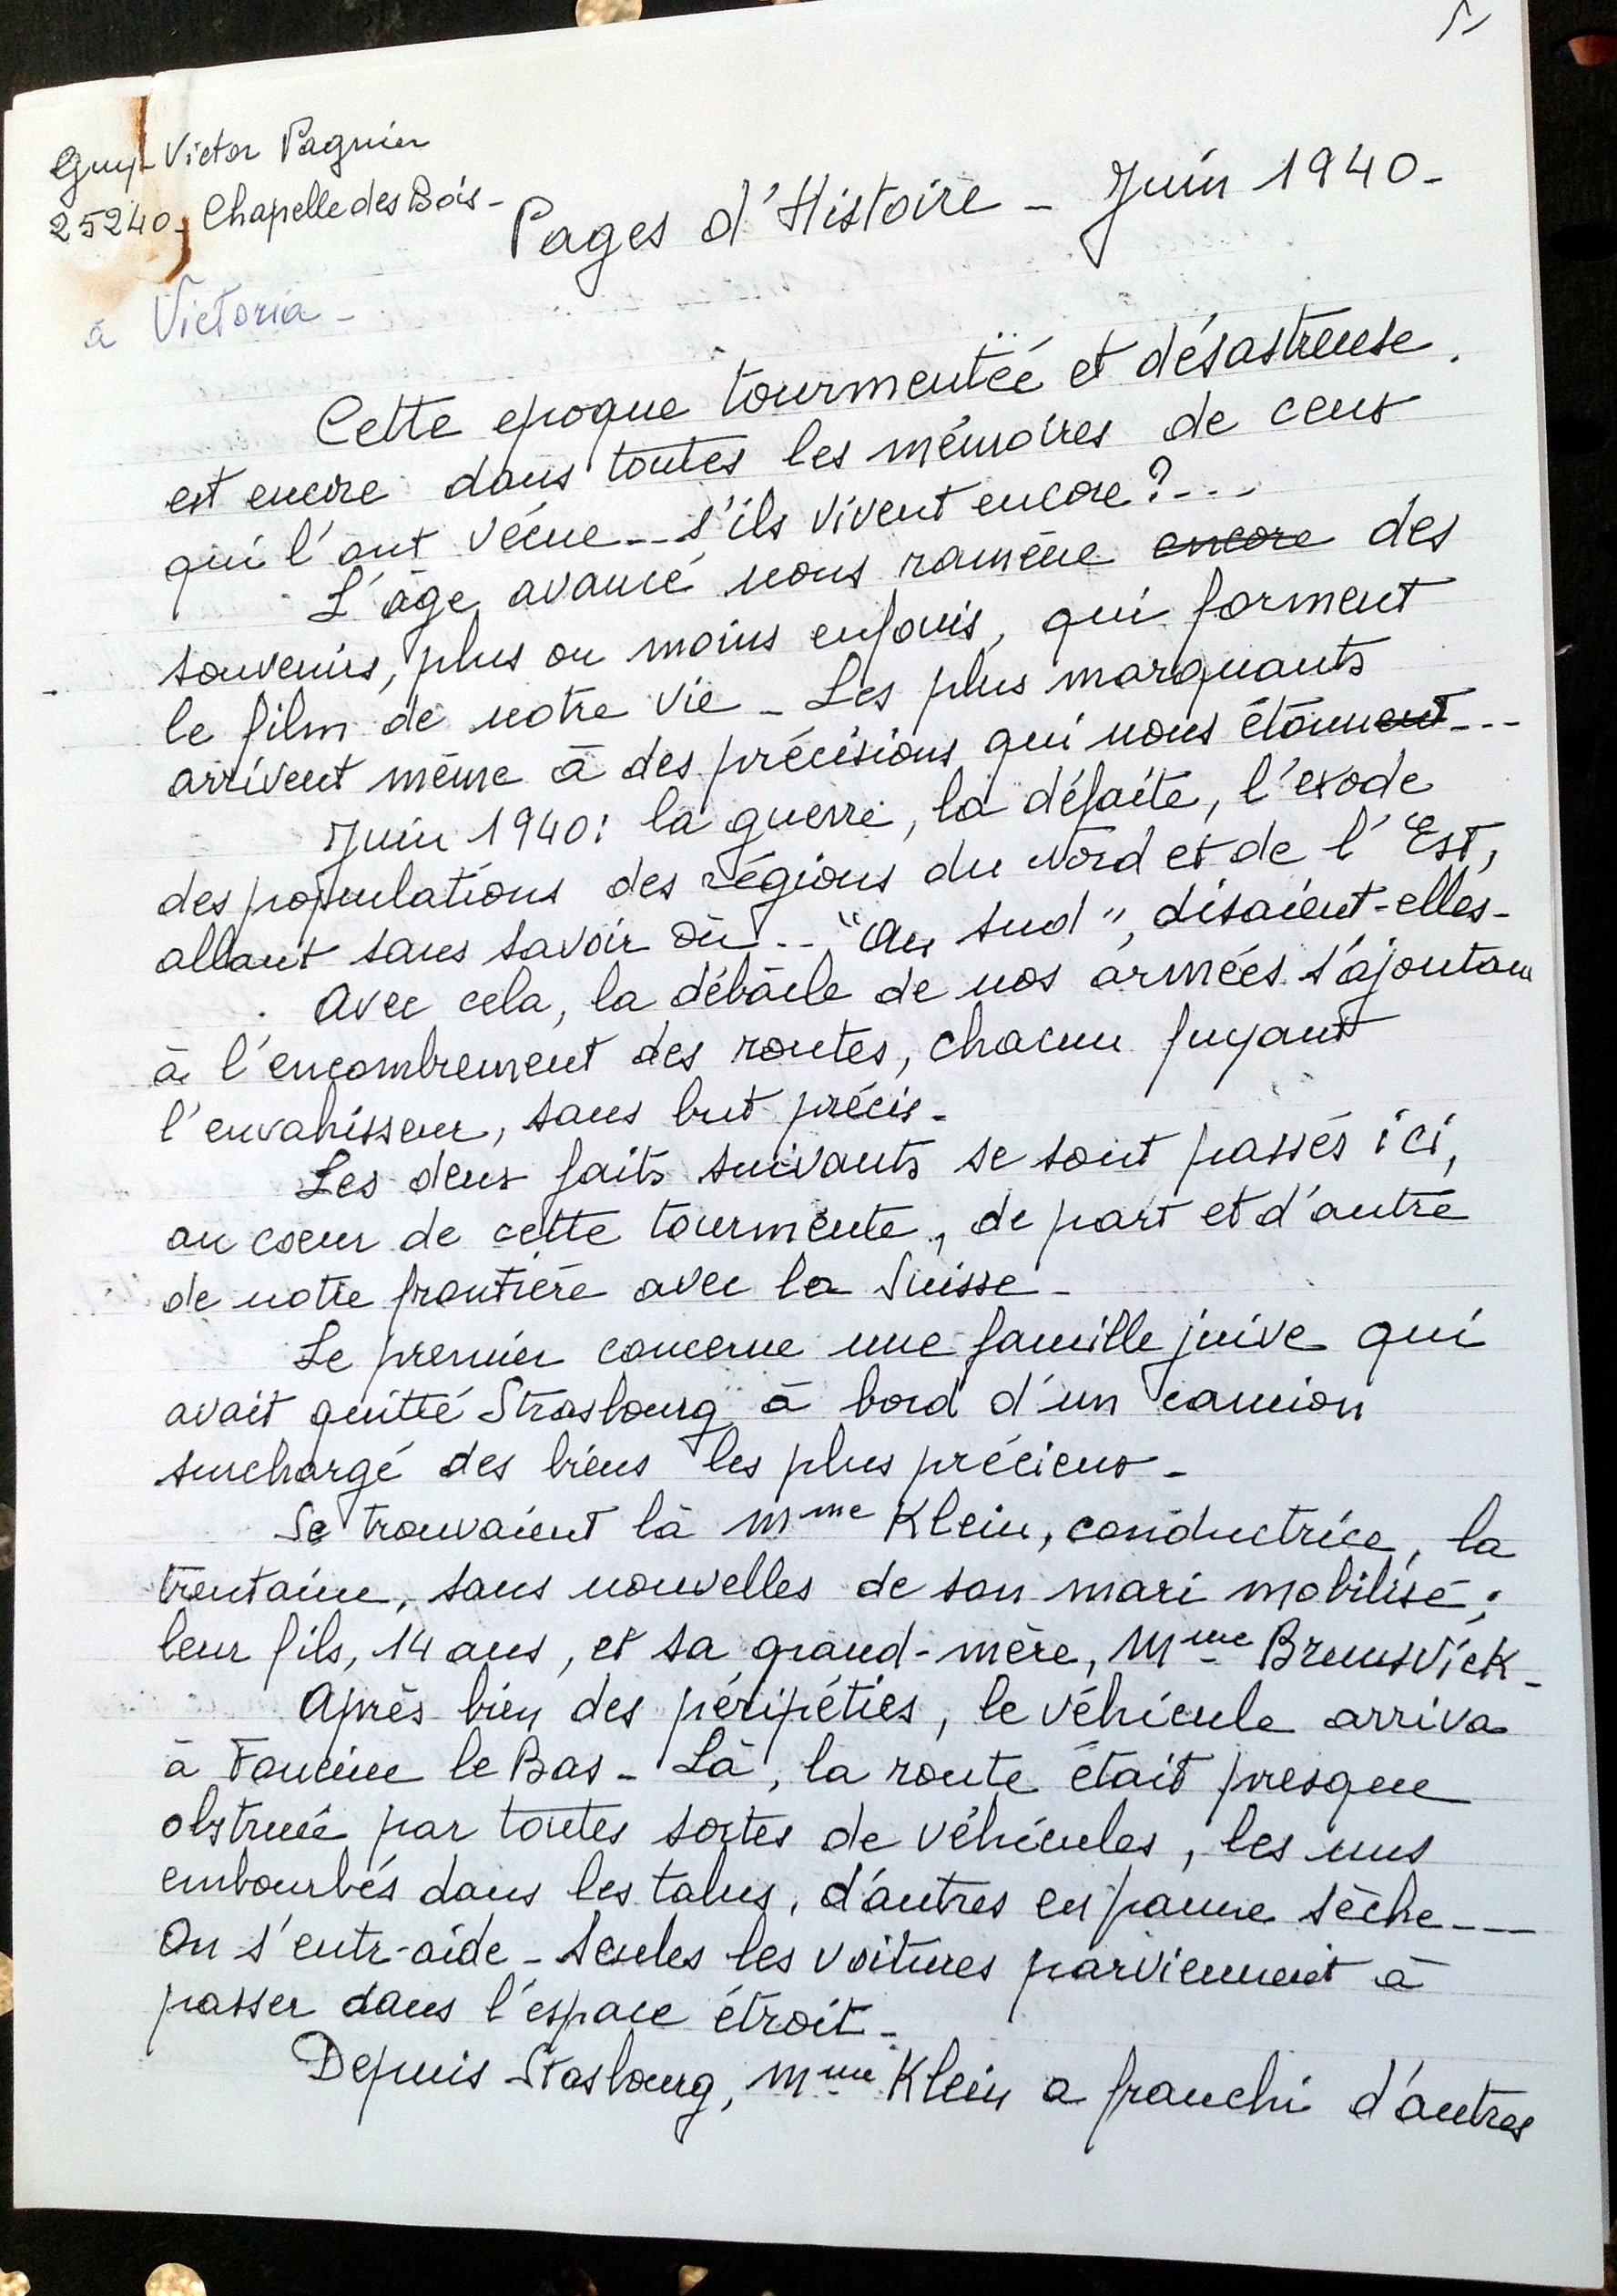 Guy-Victor Pagnier
25240 - Chapelle des Bois -
Pages d'Histoire - Juin 1940 -
à Victoria -
Cette epoque tourmentée et désastreuse
est encore dans toutes les mémoires de ceux
qui l'ont vécue -- s'ils vivent encore ? ---
L'âge avancé nous ramène encore des
souvenirs, plus ou moins enfouis, qui forment
le film de notre vie - Les plus marquants
arrivent même à des précisions qui nous étonnent ---
Juin 1940 : la guerre, la défaite, l'exode
des populations des régions du Nord et de l'Est,
allant sans savoir où -- "Au sud", disaient-elles -
Avec cela, la débâcle de nos armées s'ajoutan
à l'encombrement des routes, chacun fuyant
l'envahisseur, sans but précis -
Les deux faits suivants se sont passés ici,
au coeur de cette tourmente, de part et d'autre
de notre frontière avec la Suisse -
Le premier concerne une famille juive qui
avait quitté Strasbourg à bord d'un camion
surchargé des biens les plus précieux -
Se trouvaient là Mme Klein, conductrice, la
trentaine, sans nouvelles de son mari mobilisé ;
leur fils, 14 ans, et sa grand-mère, Mme Brunsvick -
Après bien des péripéties, le véhicule arriva
à Foncine le Bas - Là, la route était presque
obstruée par toutes sortes de véhicules, les uns
embourbés dans les talus, d'autres en panne sèche ---
On s'entr-aide - Seules les voitures parviennent à
passer dans l'espace étroit -
Depuis Stasbourg, Mme Klein a franchi d'autres